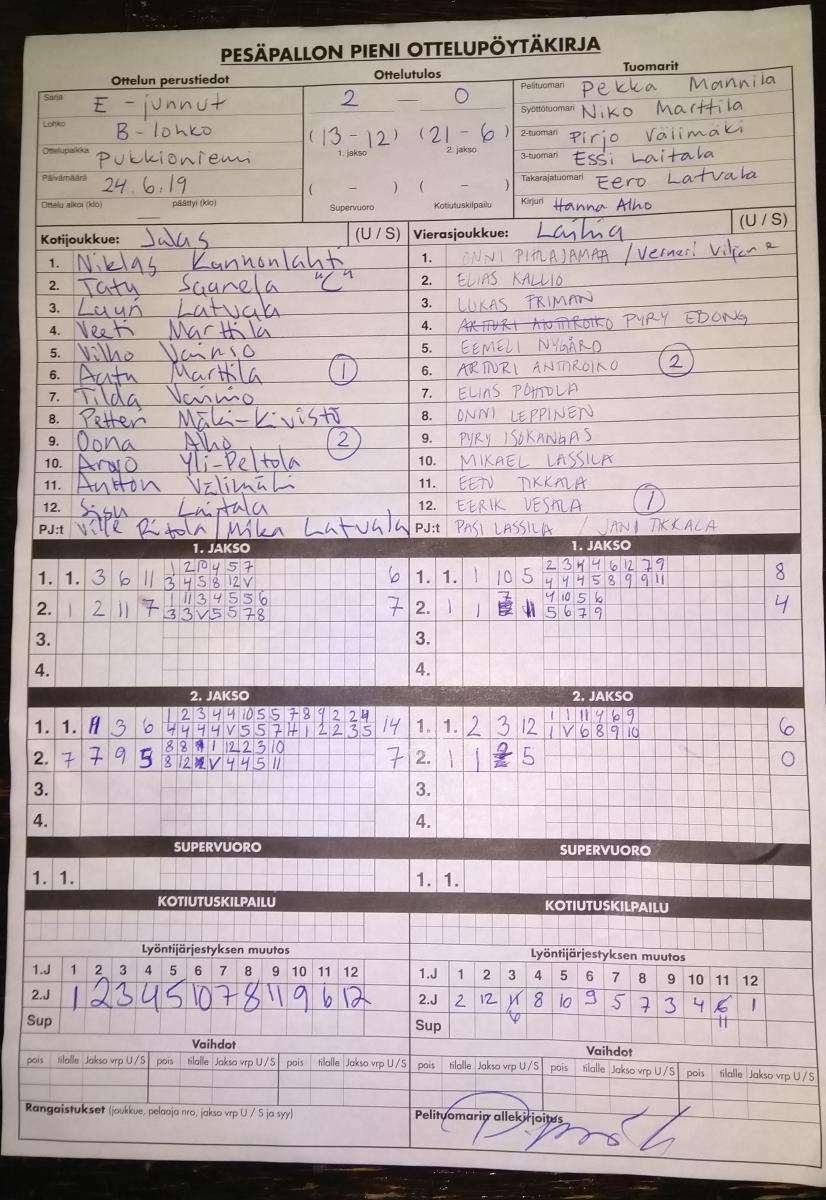 PESÄPALLON PIENI OTTELUPÖYTÄKIRJA
Ottelun perustiedot Ottelutulos Tuomarit
Sarja E - junnut
Lohko B - lohko
Ottelupaikka Pukkioniemi
Päivämäärä 24.6.19
Ottelu alkoi (klo) — päättyi (klo)
2 — 0
(13 - 12) (21 - 6)
1. jakso 2. jakso
( - ) ( - )
Supervuoro Kotiutuskilpailu
Pelituomari Pekka Mannila
Syöttötuomari Niko Marttila
2-tuomari Pirjo Välimäki
3-tuomari Essi Laitala
Takarajatuomari Eero Latvala
Kirjuri Hanna Alho
Kotijoukkue: Jalas (U / S)
1. Niklas Kannonlahti
2. Tatu Saarela "C"
3. Lauri Latvala
4. Veeti Marttila
5. Vilho Vainio
6. Aatu Marttila 1
7. Tilda Vainio
8. Petteri Mäki-Kivistö
9. Oona Alho 2
10. Arvo Yli-Peltola
11. Antton Välimäki
12. Sisu Laitala
PJ:t Ville Ritola / Mika Latvala
Vierasjoukkue: Laihia (U / S)
1. ONNI PIHLAJAMAA / Verneri
2. ELIAS KALLIO
3. LUKAS FRIMAN
4. ARTTURI ANTTIROIKO PYRY EDONG
5. EEMELI NYGÅRD
6. ARTTURI ANTTIROIKO 2
7. ELIAS POHTOLA
8. ONNI LEPPINEN
9. PYRY ISOKANGAS
10. MIKAEL LASSILA
11. EETU TIKKALA
12. EERIK VESALA 1
PJ:t PASI LASSILA / JANI TIKKALA
1. JAKSO
1. 1. 3 6 11 6
3 4 5 8 12 V
2. 1 2 11 7 1 11 3 4 5 5 6 7
3 3 V 5 5 7 8
3.
4.
1. JAKSO
1. 1. 1 10 5 2 3 4 4 6 12 7 9 8
4 4 4 5 8 9 9 11
2. 1 1 4 10 5 6 4
5 6 7 9
3.
4.
2. JAKSO
1. 1. 11 3 6 1 2 3 4 4 10 5 5 7 8 9 2 2 14
2. 7 7 9 5 7
3.
4.
2. JAKSO
1. 1. 2 3 12 1 1 11 4 6 9 6
1 V 6 8 9 10
2. 1 1 5 0
3.
4.
SUPERVUORO
1. 1.
SUPERVUORO
1. 1.
KOTIUTUSKILPAILU
KOTIUTUSKILPAILU
Lyöntijärjestyksen muutos
1.J 1 2 3 4 5 6 7 8 9 10 11 12
2.J 1 2 3 4 5 10 7 8 11 9 6 12
Sup
Lyöntijärjestyksen muutos
1.J 1 2 3 4 5 6 7 8 9 10 11 12
2.J 2 12 6 8 10 9 5 7 3 4 11 1
Sup
Vaihdot
pois tilalle Jakso vrp U / S pois tilalle Jakso vrp U / S pois tilalle Jakso vrp U / S
Vaihdot
pois tilalle Jakso vrp U / S pois tilalle Jakso vrp U / S pois tilalle Jakso vrp U / S
Rangaistukset (joukkue, pelaaja nro, jakso vrp U / S ja syy)
Pelituomarin allekirjoitus